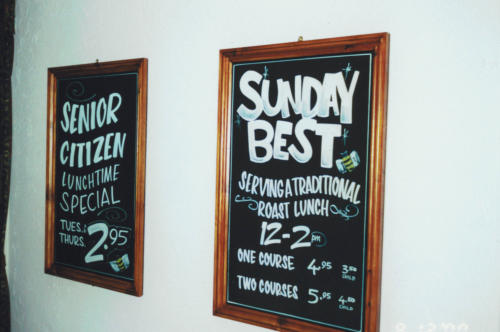 SENIOR
CITIZEN
LUNCHTIME
SPECIAL
TUES. &
THURS. 2.95
SUNDAY
BEST
SERVING A TRADITIONAL
ROAST LUNCH
12-2 pm
ONE COURSE 4.95 3.50
CHILD
TWO COURSES 5.95 4.50
CHILD